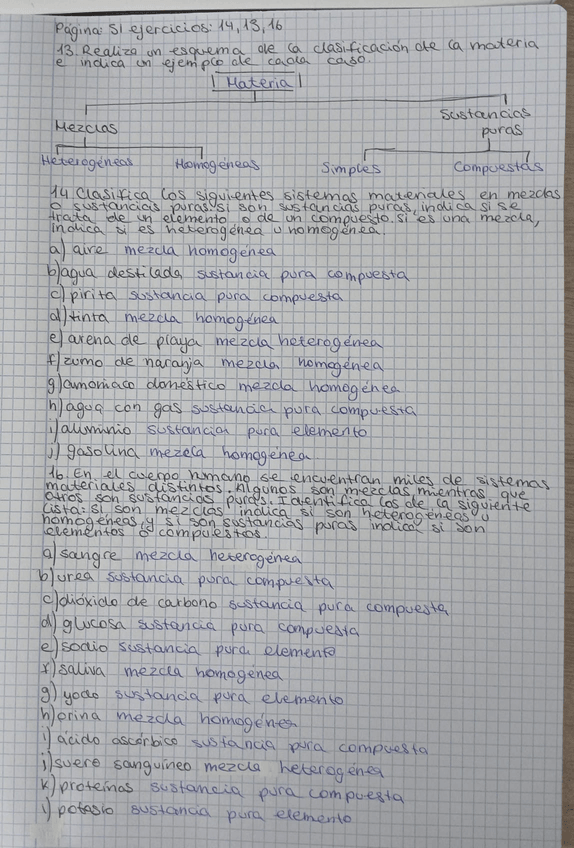 Página: 51 ejercicios: 14, 13, 16
13. Realiza un esquema de la clasificación de la materia
e indica un ejemplo de cada caso.
Materia
Mezclas
Sustancias
puras
Heterogéneas Homogéneas Simples Compuestas
14. Clasifica los siguientes sistemas materiales en mezclas
o sustancias puras y si son sustancias puras, indica si se
trata de un elemento o de un compuesto. Si es una mezcla,
indica si es heterogénea u homogénea.
a) aire mezcla homogénea
b) agua destilada sustancia pura compuesta
c) pirita sustancia pura compuesta
d) tinta mezcla homogénea
e) arena de playa mezcla heterogénea
f) zumo de naranja mezcla homogénea
g) amoniaco doméstico mezcla homogénea
h) agua con gas sustancia pura compuesta
i) aluminio sustancia pura elemento
j) gasolina mezcla homogénea
16. En el cuerpo humano se encuentran miles de sistemas
materiales distintos. Algunos son mezclas, mientras que
otros son sustancias puras. Identifica los de la siguiente
lista: si son mezclas indica si son heterogéneas u
homogéneas, y si son sustancias puras indica si son
elementos o compuestos.
a) sangre mezcla heterogénea
b) urea sustancia pura compuesta
c) dióxido de carbono sustancia pura compuesta
d) glucosa sustancia pura compuesta
e) sodio sustancia pura elemento
f) saliva mezcla homogénea
g) yodo sustancia pura elemento
h) orina mezcla homogénea
i) ácido ascórbico sustancia pura compuesta
j) suero sanguíneo mezcla heterogénea
k) proteínas sustancia pura compuesta
l) potasio sustancia pura elemento